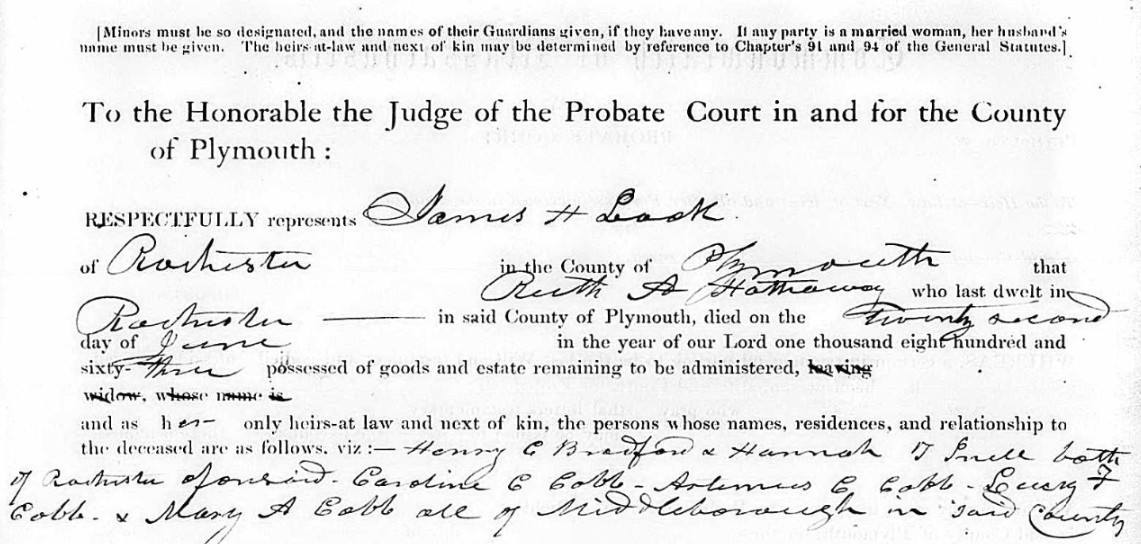 [Minors must be so designated, and the names of their Guardians given, if they have any. If any party is a married woman, her husband's
name must be given. The heirs-at-law and next of kin may be determined by reference to Chapter's 91 and 94 of the General Statutes.]
To the Honorable the Judge of the Probate Court in and for the County
of Plymouth :
RESPECTFULLY represents James H Look
of Rochester in the County of Plymouth that
Ruth A Hathaway who last dwelt in
Rochester in said County of Plymouth, died on the twenty second
day of June in the year of our Lord one thousand eight hundred and
sixty-three possessed of goods and estate remaining to be administered, leaving
widow, whose name is
and as her only heirs-at law and next of kin, the persons whose names, residences, and relationship to
the deceased are as follows, viz :— Henry C Bradford & Hannah T Snell both
of Rochester aforesaid - Caroline C Cobb - Artemus C Cobb - Lucy F
Cobb - & Mary A Cobb all of Middleborough in said County